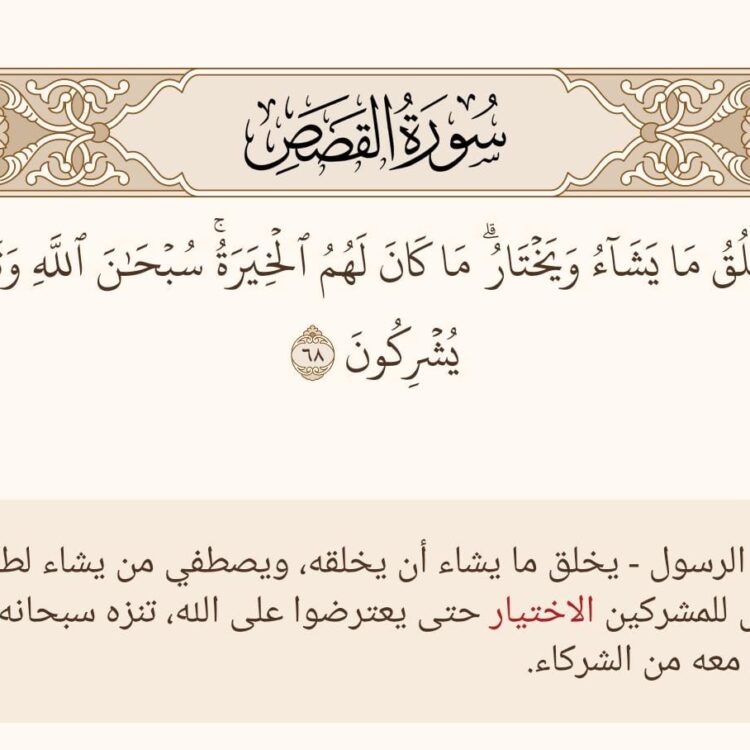 سُورَةُ القَصَصِ
مَا يَشَآءُ وَيَخۡتَارُۗ مَا كَانَ لَهُمُ ٱلۡخِيَرَةُۚ سُبۡحَٰنَ ٱللَّهِ
يُشۡرِكُونَ ٦٨
الرسول - يخلق ما يشاء أن يخلقه، ويصطفي من يشاء
للمشركين الاختيار حتى يعترضوا على الله، تنزه سبحانه
معه من الشركاء.